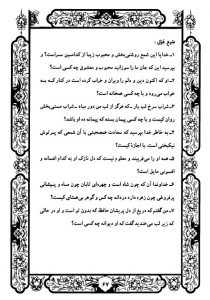 شمع غزل:
۱ـ خدا یا این شمع روشنی‌بخش و محبوب زیبا از کدامین سراست؟ و
بپرسید که جان ما را سوزانید محبوب و معشوق چه کسی است؟
۲ـ او که اکنون دین و دلم را ویران و خراب کرده است در کنار که به
خواب می‌رود و با چه کسی همخانه است؟
۳ـ شراب سرخ لب یار ـ که هرگز از لب من دور مباد ـ شراب مستی‌بخش
روان کیست و با چه کسی پیمان بسته که پیمانه ده او باشد؟
۴ـ به خاطر خدا بپرسید که سعادت همصحبتی با آن شمعی که پرتوش
نیکبختی است، با اجازهٔ کیست؟
۵ـ همه او را می‌فریبند و معلوم نیست که دل نازک او به کدام افسانه و
افسونی مایل است؟
۶ـ خداوندا آن که چون شاه است و چهره‌ای تابان چون ماه و پیشانی
پرفروغی چون زهره دارد دردانه چه کس و گوهر بی‌همتای کیست؟
۷ـ من گفتم که دریغ از دل پریشان حافظ که بدون تو است و او در حالی
که زیر لب می‌خندید گفت که او دیوانه چه کسی است؟
۶۷